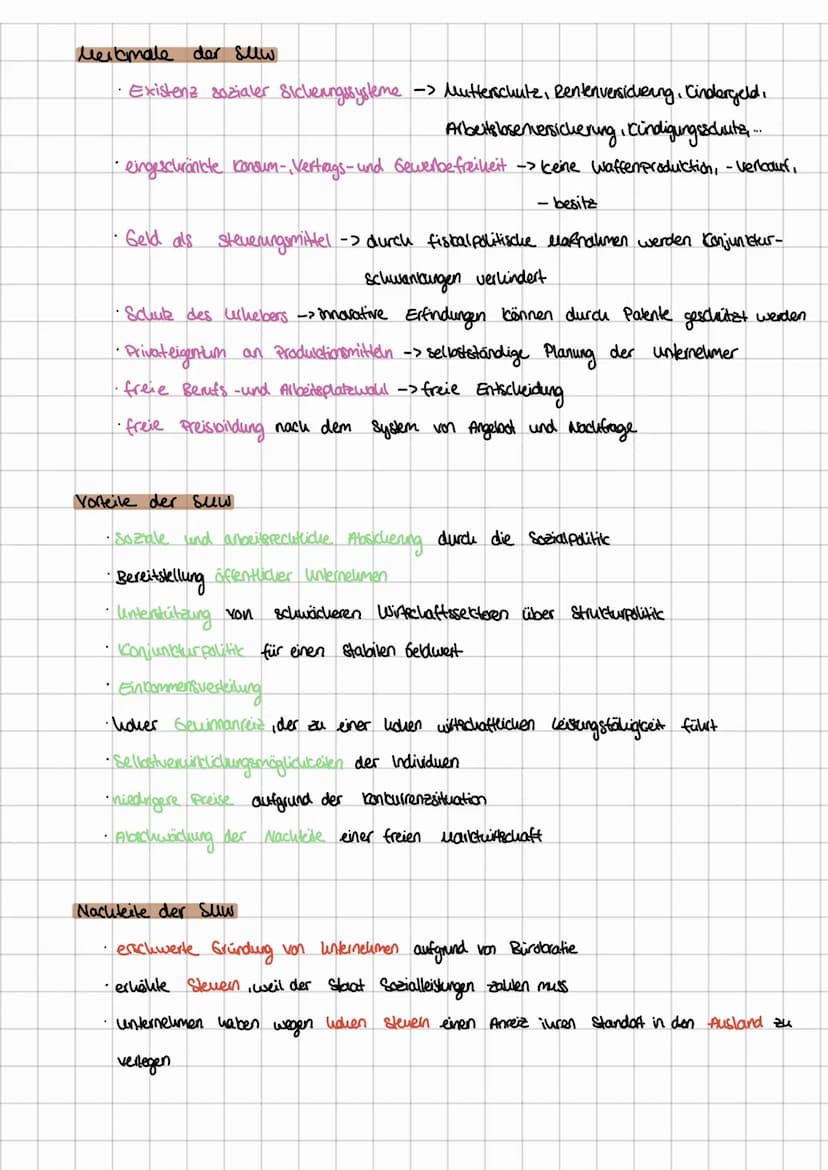 Merkmale der SMW
· Existenz sozialer Sicherungssysteme -> Mutterschutz, Rentenversicherung, Kindergeld,
Arbeitslosenversicherung, Kündigungsschutz, ...
· eingeschränkte Konsum-, Vertrags- und Gewerbefreiheit -> keine Waffenproduktion, -verkauf,
- besitz
· Geld als Steuerungsmittel -> durch fiskalpolitische Maßnahmen werden Konjunktur-
schwankungen verhindert
· Schutz des Urhebers -> innovative Erfindungen können durch Patente geschützt werden
· Privateigentum an Produktionsmitteln -> selbstständige Planung der Unternehmer
· freie Berufs -und Arbeitsplatzwahl -> freie Entscheidung
· freie Preisbildung nach dem System von Angebot und Nachfrage
Vorteile der SMW
· Soziale und arbeitsrechtliche Absicherung durch die Sozialpolitik
· Bereitstellung öffentlicher Unternehmen
· Unterstützung von schwächeren Wirtschaftssektoren über Strukturpolitik
· Konjunkturpolitik für einen stabilen Geldwert
· Einkommensverteilung
· hoher Gewinnanreiz, der zu einer hohen wirtschaftlichen Leistungsfähigkeit führt
· Selbstverwirklichungsmöglichkeiten der Individuen
· niedrigere Preise aufgrund der Konkurrenzsituation
· Abschwächung der Nachteile einer freien Marktwirtschaft
Nachteile der SMW
· erschwerte Gründung von Unternehmen aufgrund von Bürokratie
· erhöhte Steuern, weil der Staat Sozialleistungen zahlen muss
· Unternehmen haben wegen hohen Steuern einen Anreiz ihren Standort in den Ausland zu
verlegen